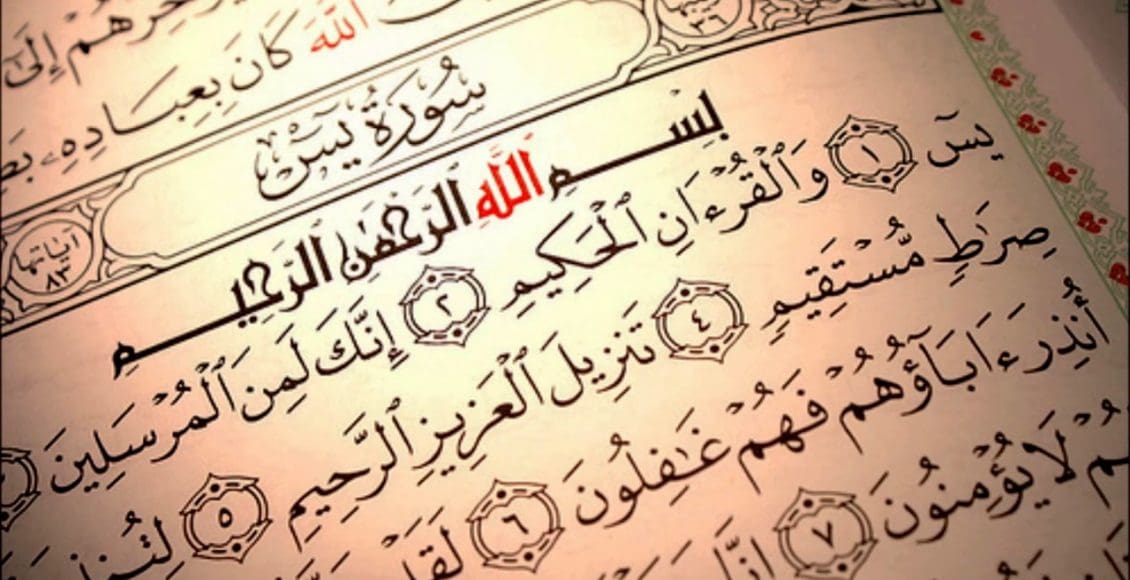 إِلَىٰ
ٱللَّهَ كَانَ بِعِبَادِهِۦ
سُورَةُ يسٓ
٣٦
آياتها ٨٣
بِسۡمِ ٱللَّهِ ٱلرَّحۡمَٰنِ ٱلرَّحِيمِ
يسٓ ١ وَٱلۡقُرۡءَانِ ٱلۡحَكِيمِ ٢ إِنَّكَ لَمِنَ ٱلۡمُرۡسَلِينَ
صِرَٰطٖ مُّسۡتَقِيمٖ ٤ تَنزِيلَ ٱلۡعَزِيزِ ٱلرَّحِيمِ ٥
أُنذِرَ ءَابَآؤُهُمۡ فَهُمۡ غَٰفِلُونَ ٦
لَا يُؤۡمِنُونَ ٧